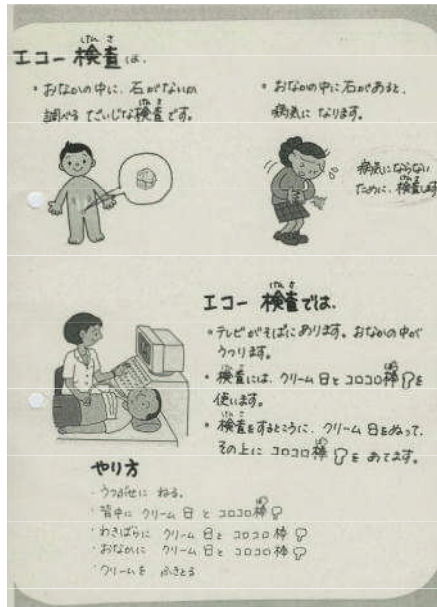 エコー検査は、
・おなかの中に、石がないか
調べる だいじな検査です。
・おなかの中に石があると、
病気に なります。
病気にならない
ために、検査します
エコー 検査では、
・テレビがそばにあります。おなかの中が
うつります。
・検査には、クリーム と コロコロ棒 を
使います。
・検査をするところに、クリーム をぬって、
その上に コロコロ棒 を あてます。
やり方
・うつぶせに ねる。
・背中に クリーム と コロコロ棒
・わきばらに クリーム と コロコロ棒
・おなかに クリーム と コロコロ棒
・クリームを ふきとる